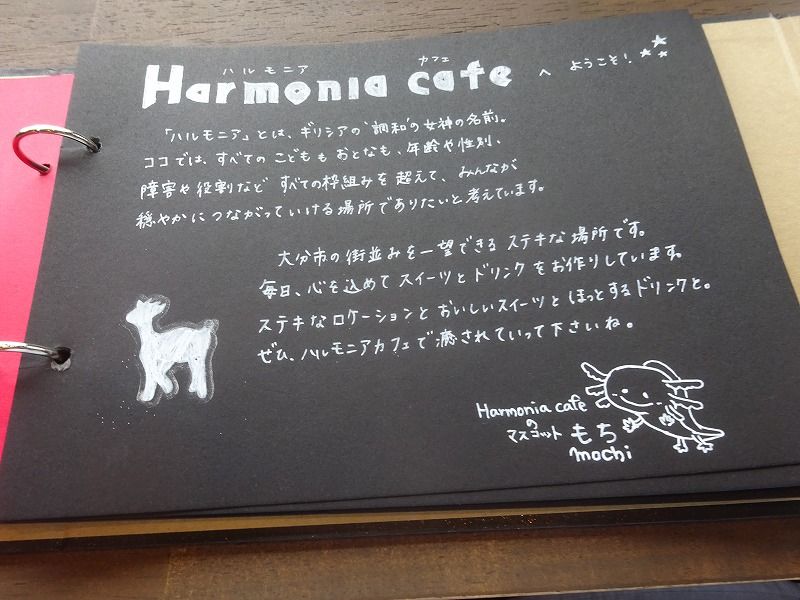 ハルモニア カフェ
Harmonia cafe へ ようこそ!
「ハルモニア」とは、ギリシアの'調和'の女神の名前。
ココでは、すべての こどもも おとなも、年齢や性別、
障害や役割など すべての枠組みを 超えて、みんなが
穏やかに つながっていける 場所でありたいと考えています。
大分市の街並みを一望できる ステキな場所です。
毎日、心を込めて スイーツと ドリンク をお作りしています。
ステキな ロケーションと おいしいスイーツと ほっとする ドリンクと。
ぜひ、ハルモニアカフェで 癒されていって 下さいね。
Harmonia cafe
の
マスコット もち
mochi